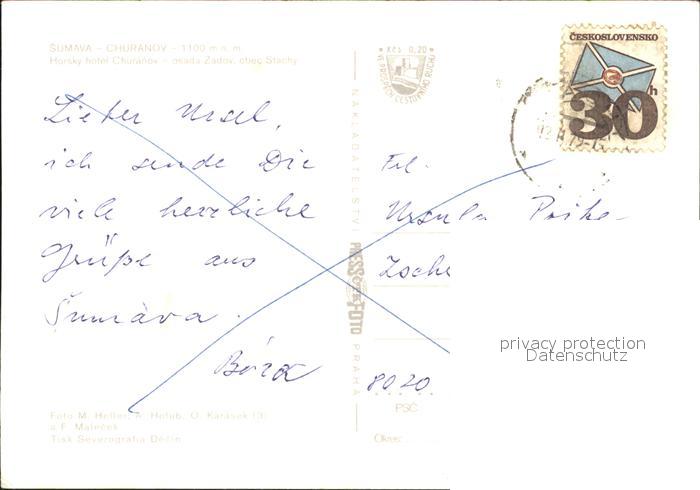 ŠUMAVA – CHURÁŇOV – 1100 m n. m.
Horský hotel Churáňov – osada Zadov, obec Stachy
Kčs 0,20
VE PROSPĚCH CESTOVNÍHO RUCHU
ČESKOSLOVENSKO
30 h
Lieber Ursel,
ich sende Dir
viele herzliche
Grüße aus
Šumava.
Frl.
Ursula
Zsche
8020
PSČ
Okres
NAKLADATELSTVÍ PRESSFOTO PRAHA
Foto M. Heller, A. Holub, O. Karásek (3)
a F. Maleček
Tisk Severografia Děčín
privacy protection
Datenschutz